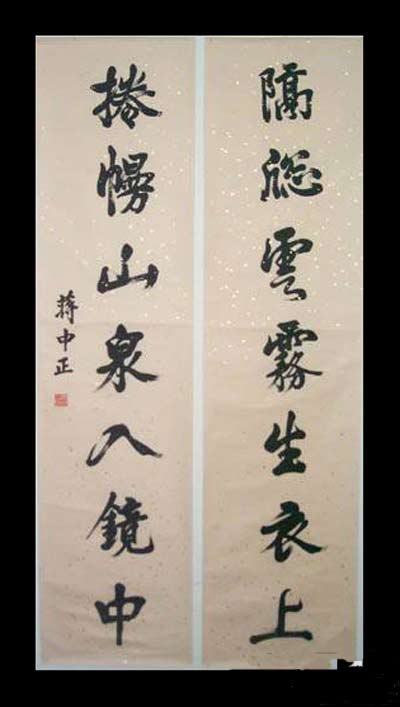 隔牕雲霧生衣上
捲幔山泉入鏡中
蔣中正